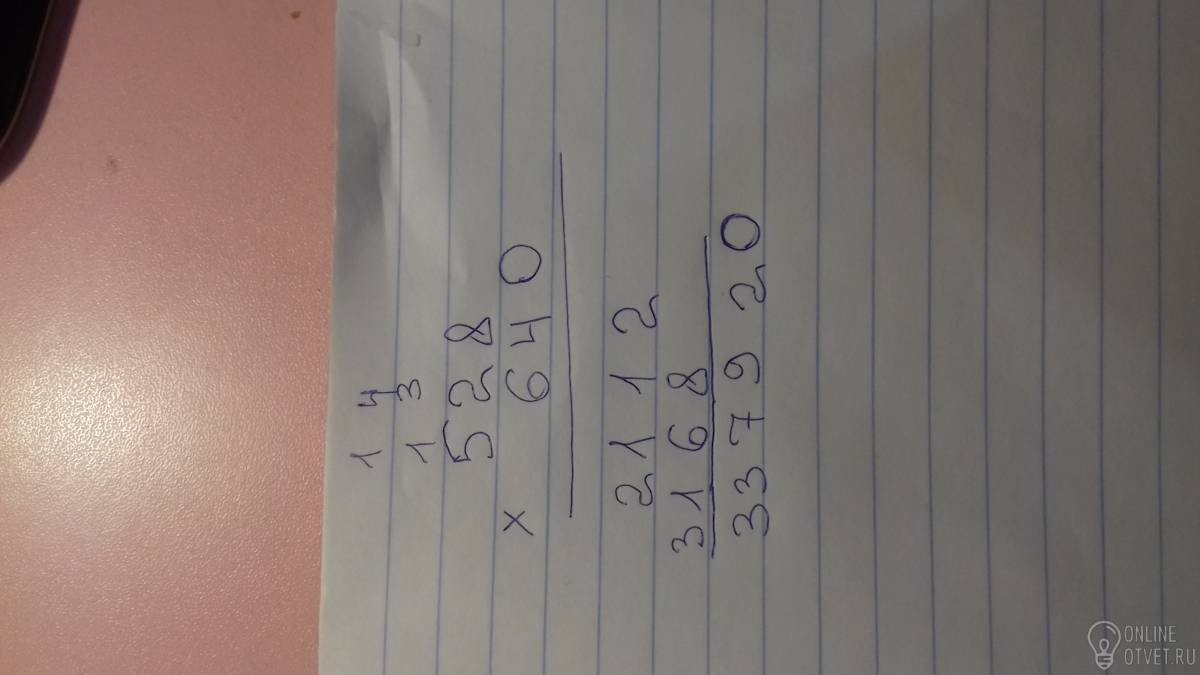 1 4
1 3
528
× 640
2112
3168
337920
ONLINE
OTVET.RU